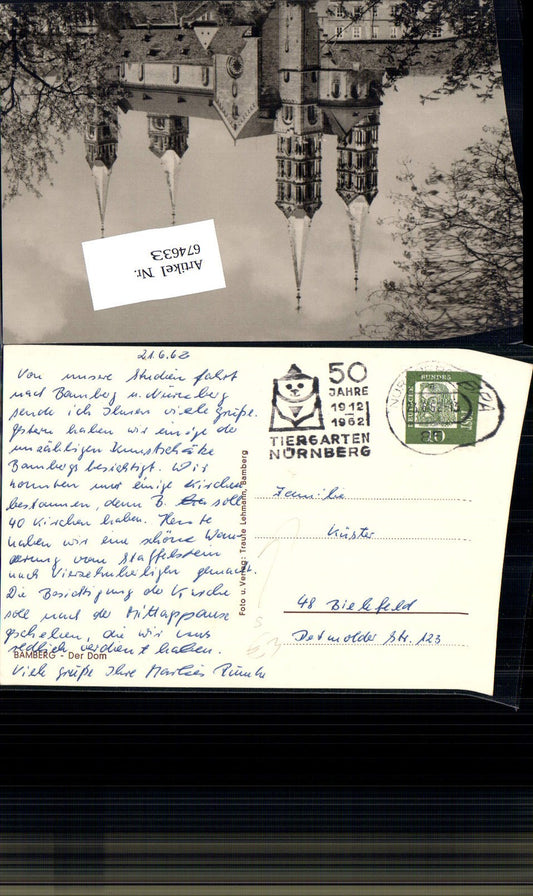 Artikel Nr.
674633
21.6.62
Von unsere Studien fahrt
nach Bamberg u. Nürnberg
sende ich Ihnen viele Grüße.
Gestern haben wir einige der
unzähligen Kunstschätze
Bambergs besichtigt. Wir
konnten nur einige Kirchen
bestaunen, denn B. soll
40 Kirchen haben. Heute
haben wir eine schöne Wan-
derung von Staffelstein
nach Vierzehnheiligen gemacht.
Die Besichtigung der Kirche
soll nach der Mittagspause
geschehen, die wir uns
redlich verdient haben.
BAMBERG - Der Dom
Viele Grüße Ihre Marlies
Foto u. Verlag: Traute Lehmann, Bamberg
50
JAHRE
1912
1962
TIERGARTEN
NÜRNBERG
DEUTSCHE BUNDESPOST
Familie
Küster
48 Bielefeld
Detmolder Str. 123